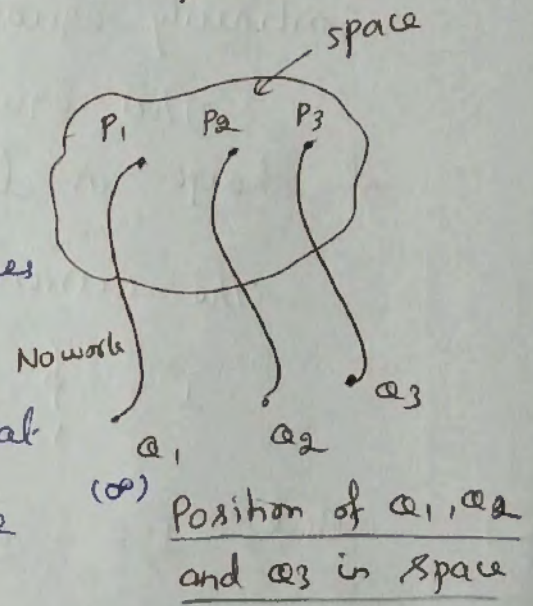 space
P1 P2 P3
es
No work
Q3
al
Q1 Q2
(∞)
e
Position of Q1, Q2
and Q3 in space